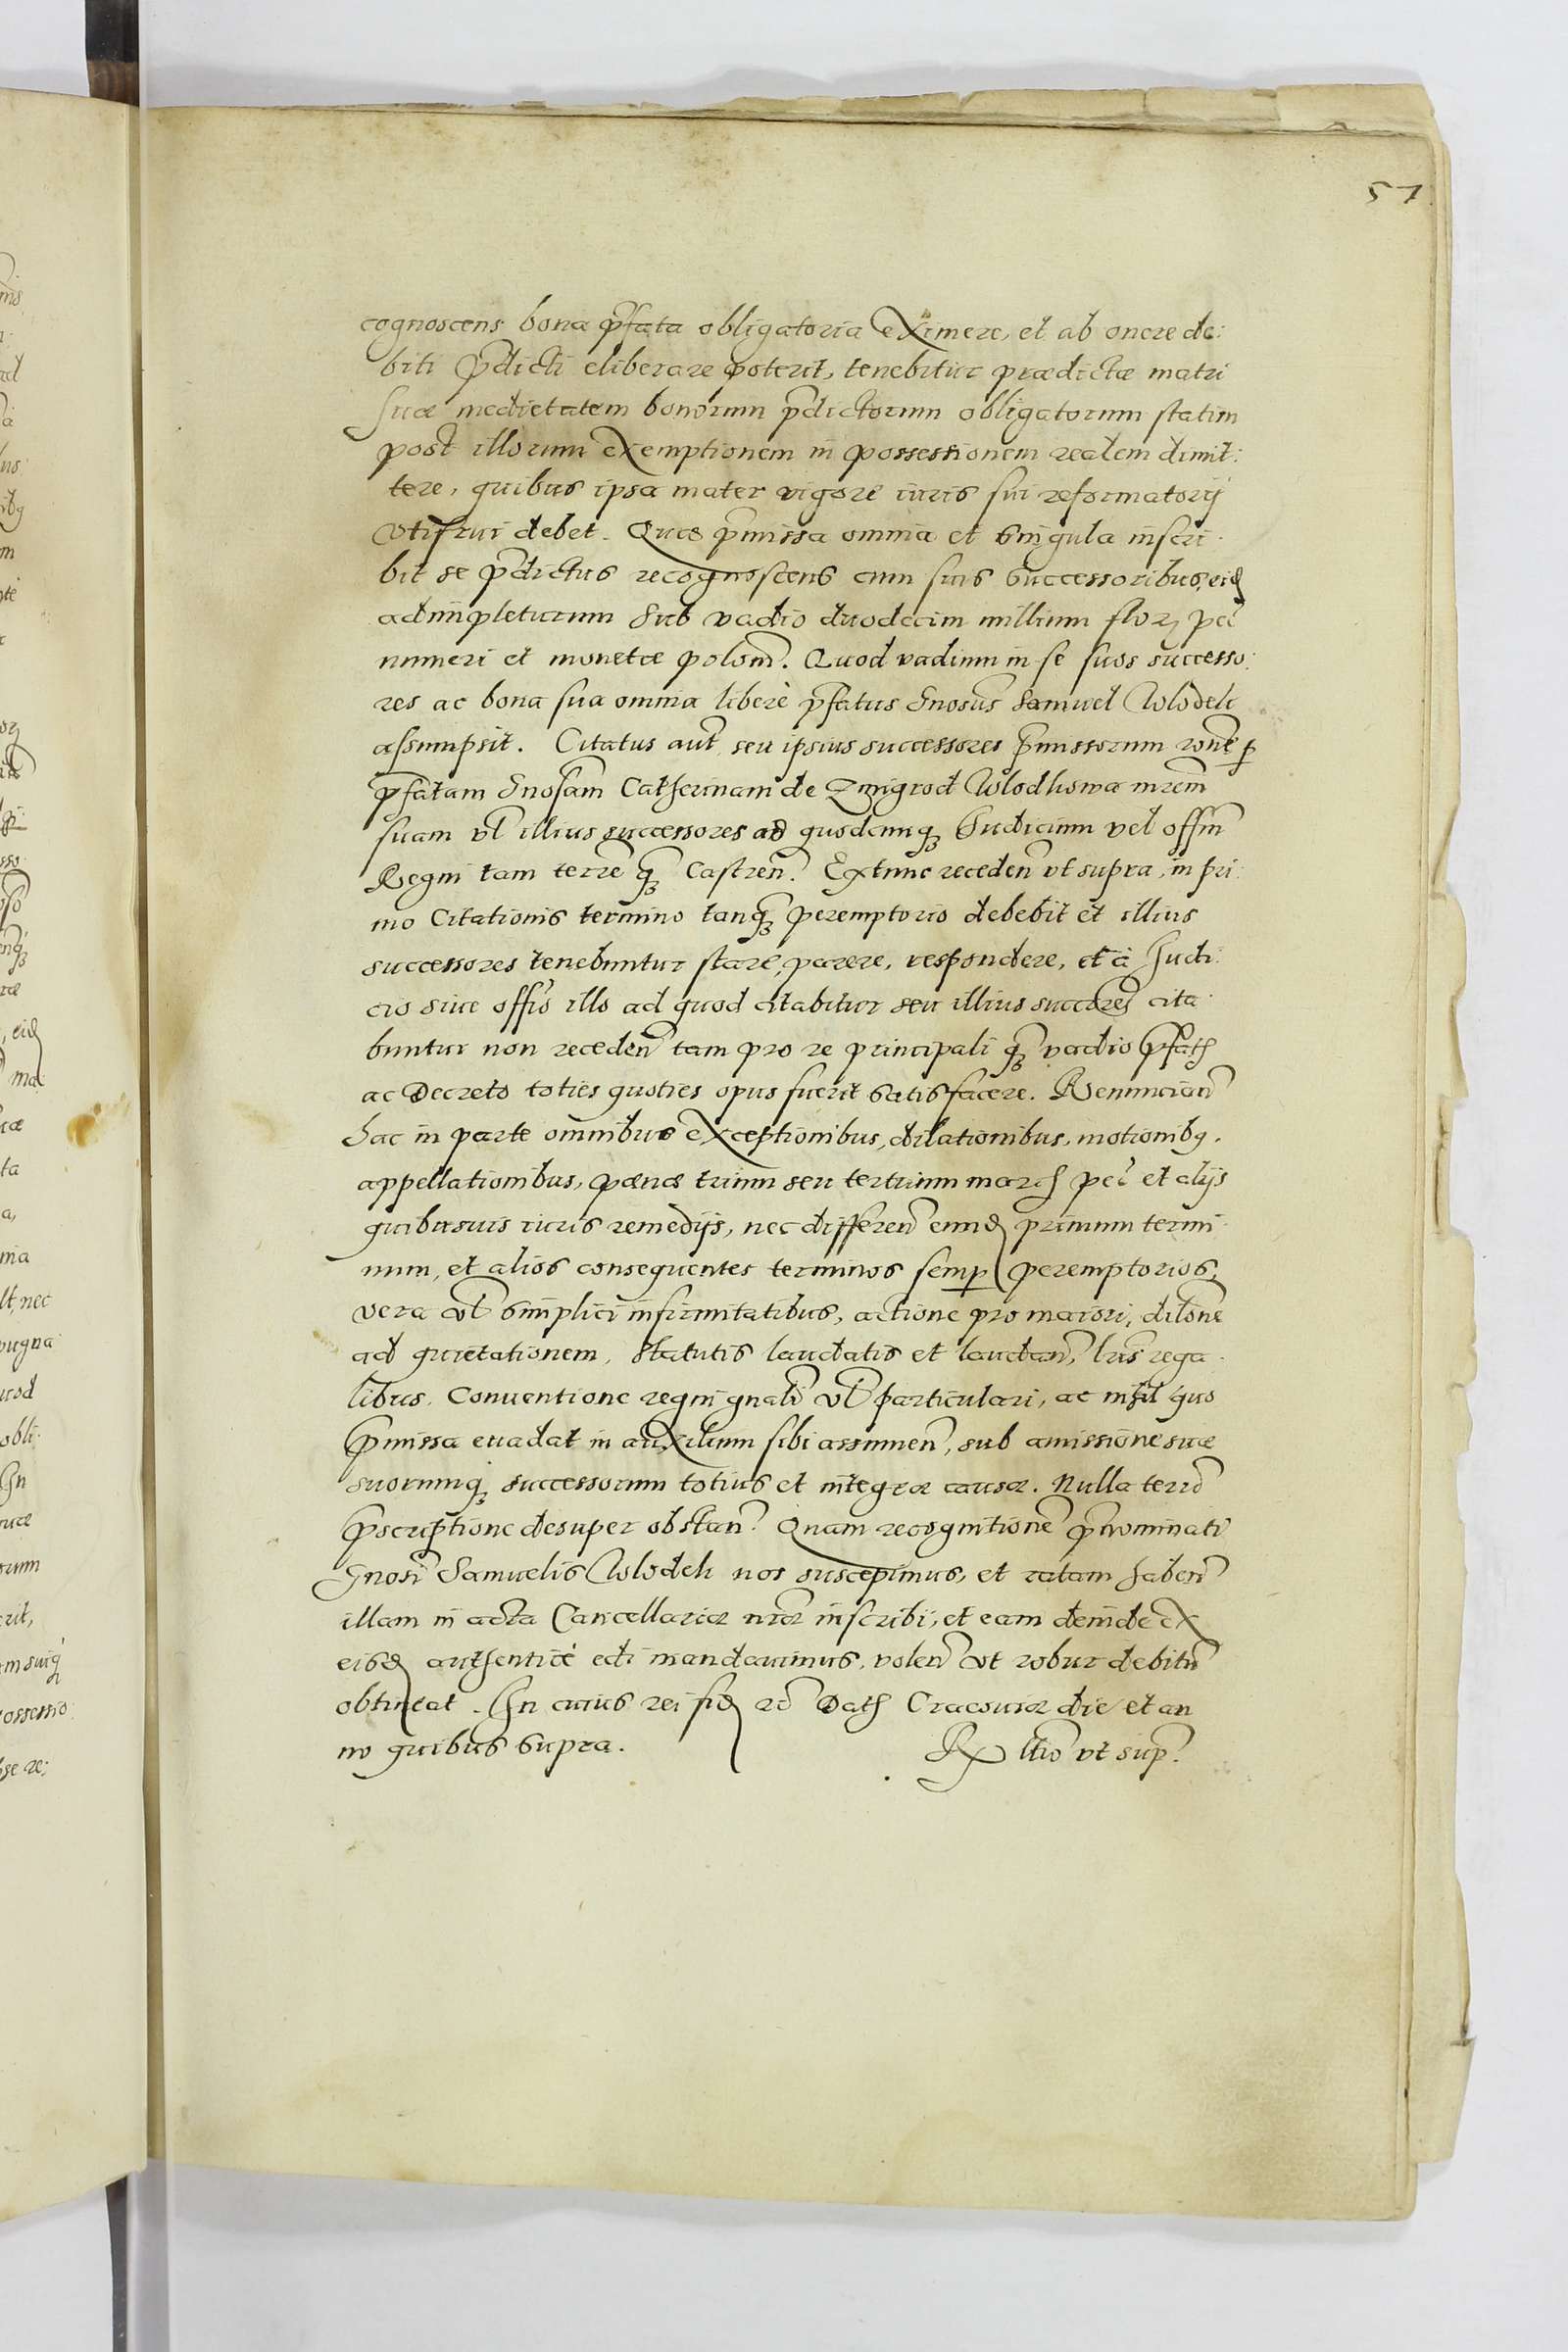 57
cognoscens bona p̄fata obligatoria eximere, et ab onere de:
biti p̄dicti eliberare poterit, tenebitur prædictæ matri
suæ medietatem bonorum p̄dictorum obligatorum statim
post illorum exemptionem in possessionem realem dimit:
tere, quibus ipsa mater vigore iuris sui reformatorij
vtifrui debet. Quæ p̄missa omnia et singula inscri
bit se p̄dictus recognoscens cum suis successoribus, eid
adimpleturum sub vadio duodecim millium flor pec
numeri et monetæ polon̄. Quod vadium in se suos successo:
res ac bona sua omnia liberè p̄fatus Gnosus Samuel Wlodek
assumpsit. Citatus aut̄ seu ipsius successores p̄missorum rōne p
p̄fatam Gnosam Catherinam de Zmigrod Wlodkowa mrem
suam vl illius successores ad quodcunq Iudicium vel offm
Regni tam terrē q̄ Castren̄. Extunc receden̄ vt supra, in pri
mo Citationis termino tanq̄ peremptorio debebit et illius
successores tenebuntur stare, parere, respondere, et à Iudi
cio siue offō illo ad quod citabitur seu illius succores cita
buntur non receden̄ tam pro re principali q̄ vadio p̄fath
ac Decreto toties quoties opus fuerit satisfacere. Renuncian̄
hac in parte omnibus exceptionibus, dilationibus, motionibq,
appellationibus, pœnæ trium seu tertrium march pec et alijs
quibusuis iuris remedijs, nec differen̄ eund primum termi
num, et alios consequentes terminos semp peremptorios,
vera vl simplici infirmitatibus, actione pro maiori, dilōne
ad quietationem, statutis laudatis et laudan̄, lris rega
libus, Conuentione regni gnali vl particulari, ac nihil quo
p̄missa euadat in auxilium sibi assumen̄, sub amissione suæ
suorumq successorum totius et integræ causæ. Nulla terrē
p̄scriptione desuper obstan̄. Quam recognitionē p̄nominati
Gnosi Samuelis Wlodek nos suscepimus, et ratam haben̄
illam in acta Cancellariæ nræ inscribi, et eam deinde ex
eisd authenticè edi mandauimus, volen̄ vt robur debitū
obtineat. In cuius rei fid Dath Cracouiæ die et an
no quibus supra. Rx ltio vt sup.